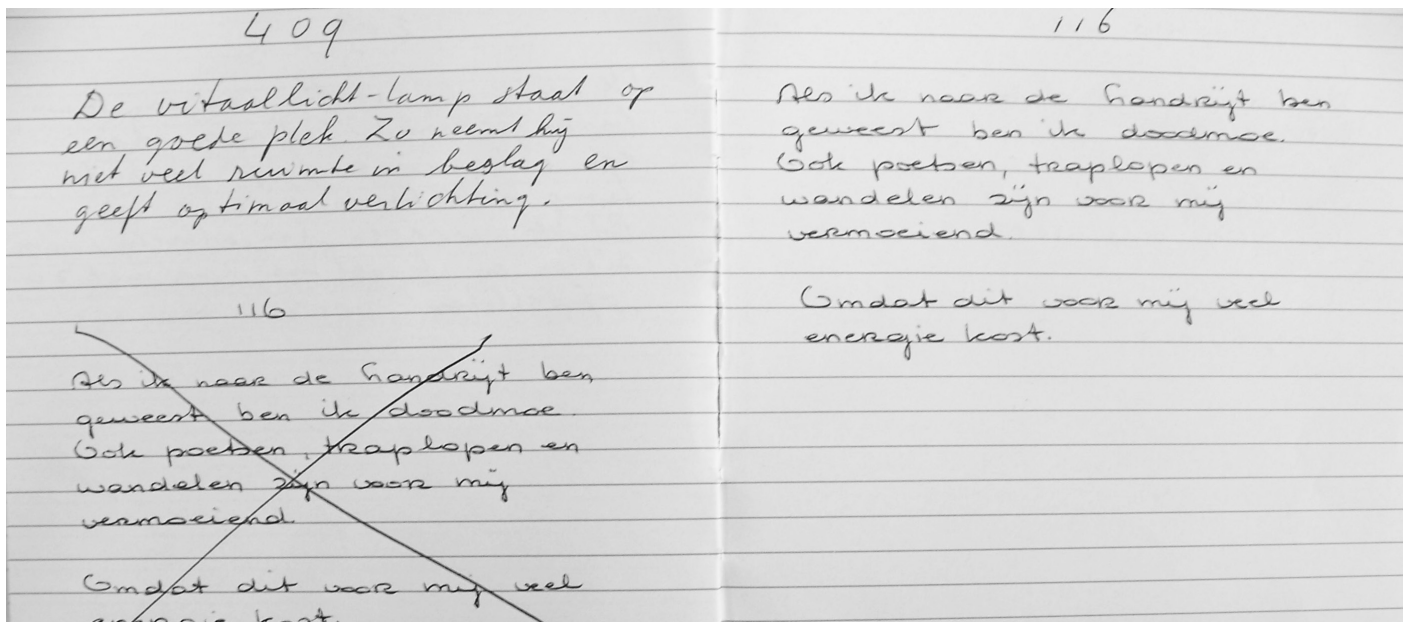 409
De vitaallicht-lamp staat op
een goede plek. Zo neemt hij
niet veel ruimte in beslag en
geeft optimaal verlichting.
116
Als ik naar de handrijt ben
geweest ben ik doodmoe.
Ook poetsen, traplopen en
wandelen zijn voor mij
vermoeiend.
Omdat dit voor mij veel
energie kost.
116
Als ik naar de handrijt ben
geweest ben ik doodmoe.
Ook poetsen, traplopen en
wandelen zijn voor mij
vermoeiend.
Omdat dit voor mij veel
energie kost.